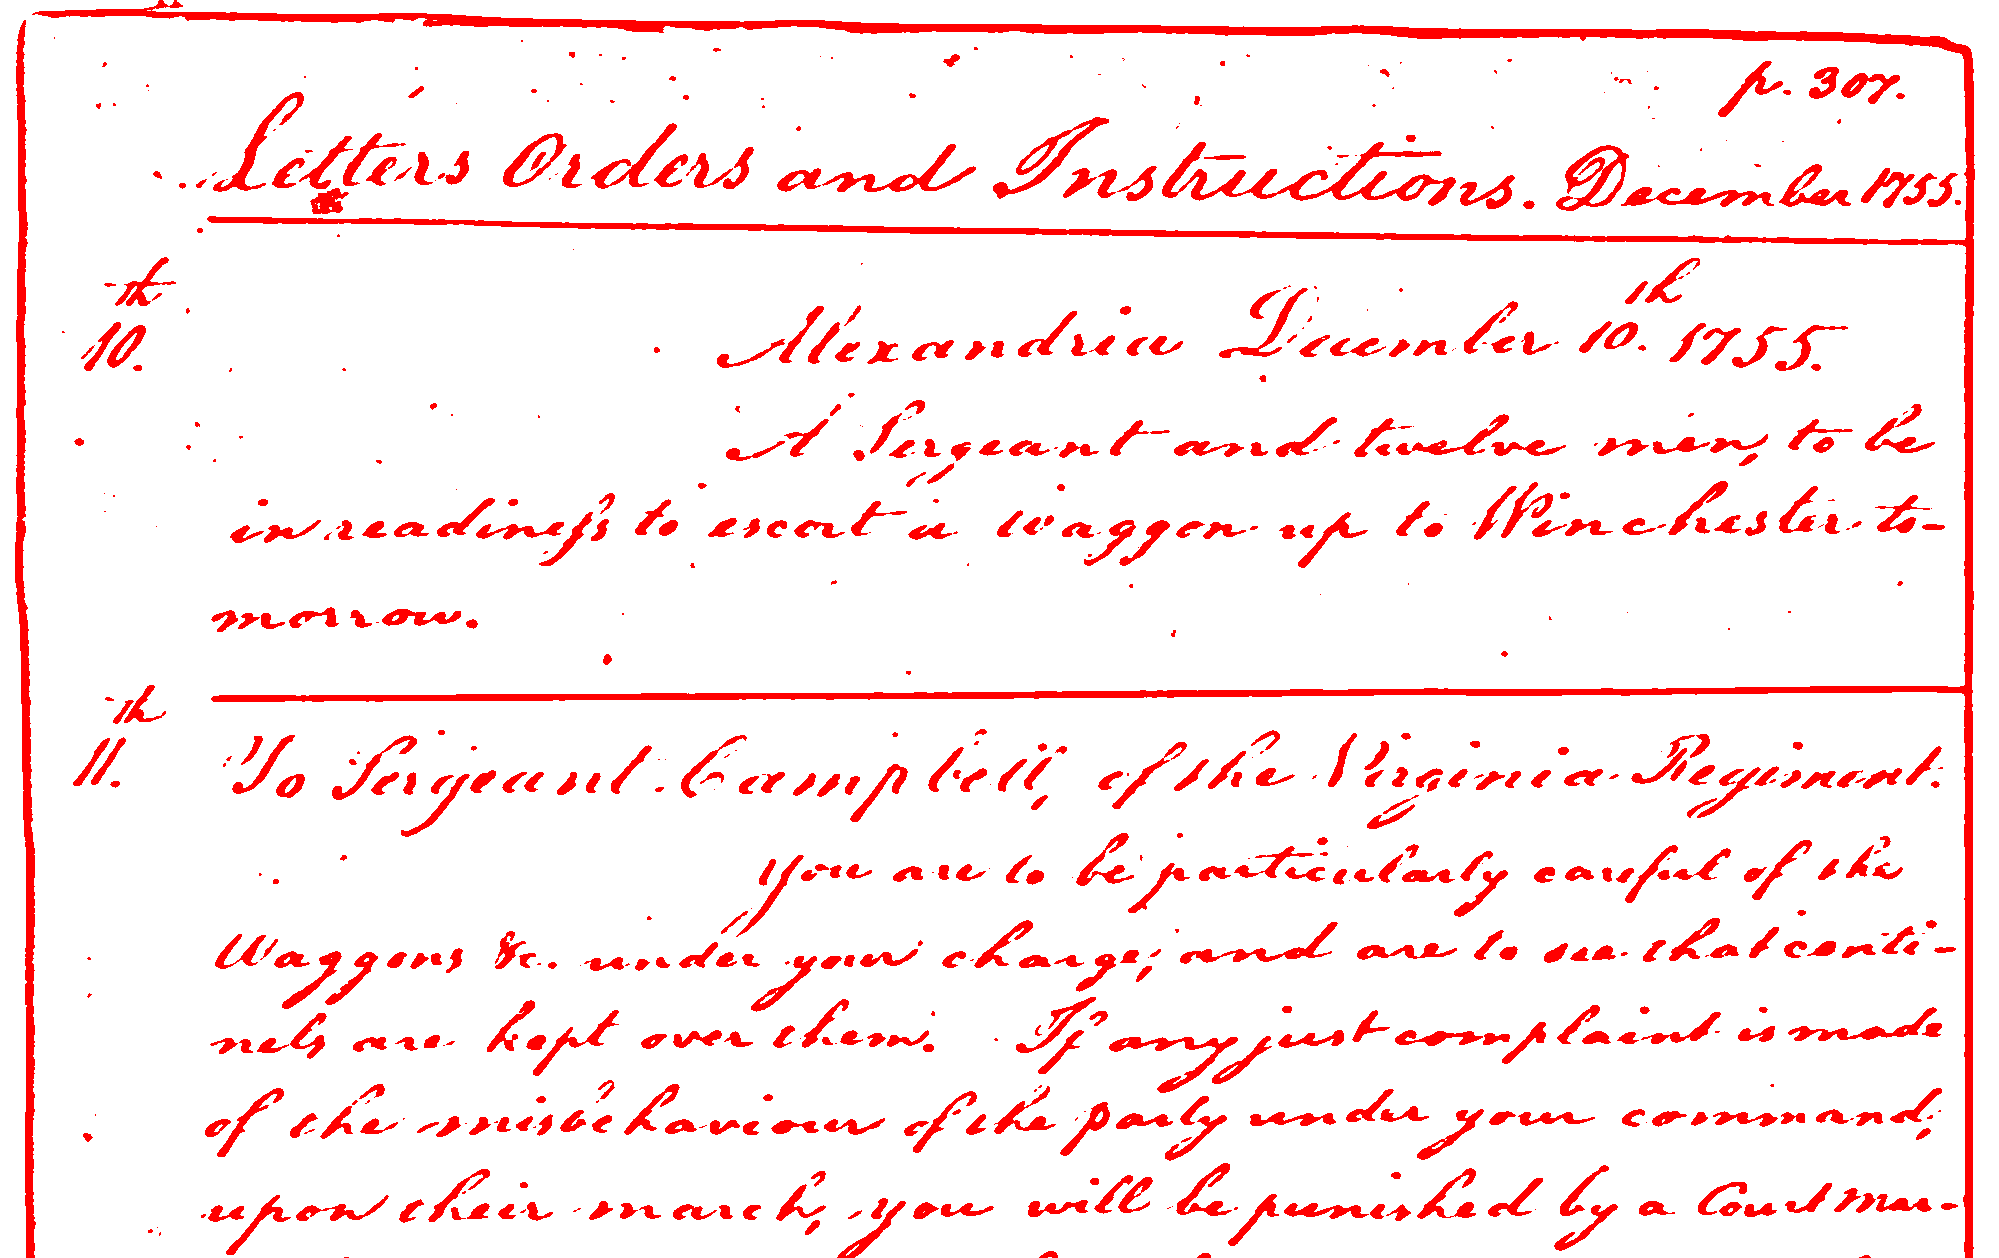 p. 307.
Letters Orders and Instructions. December 1755.
10.th Alexandria December 10.th 1755.
A Sergeant and twelve men, to be
in readiness to escort a waggon up to Winchester to-
morrow.
11.th To Sergeant Campbell, of the Virginia Regiment.
You are to be particularly careful of the
Waggons &c. under your charge; and are to see that centi-
nels are kept over them. If any just complaint is made
of the misbehaviour of the party under your command,
upon their march, you will be punished by a Court Mar-